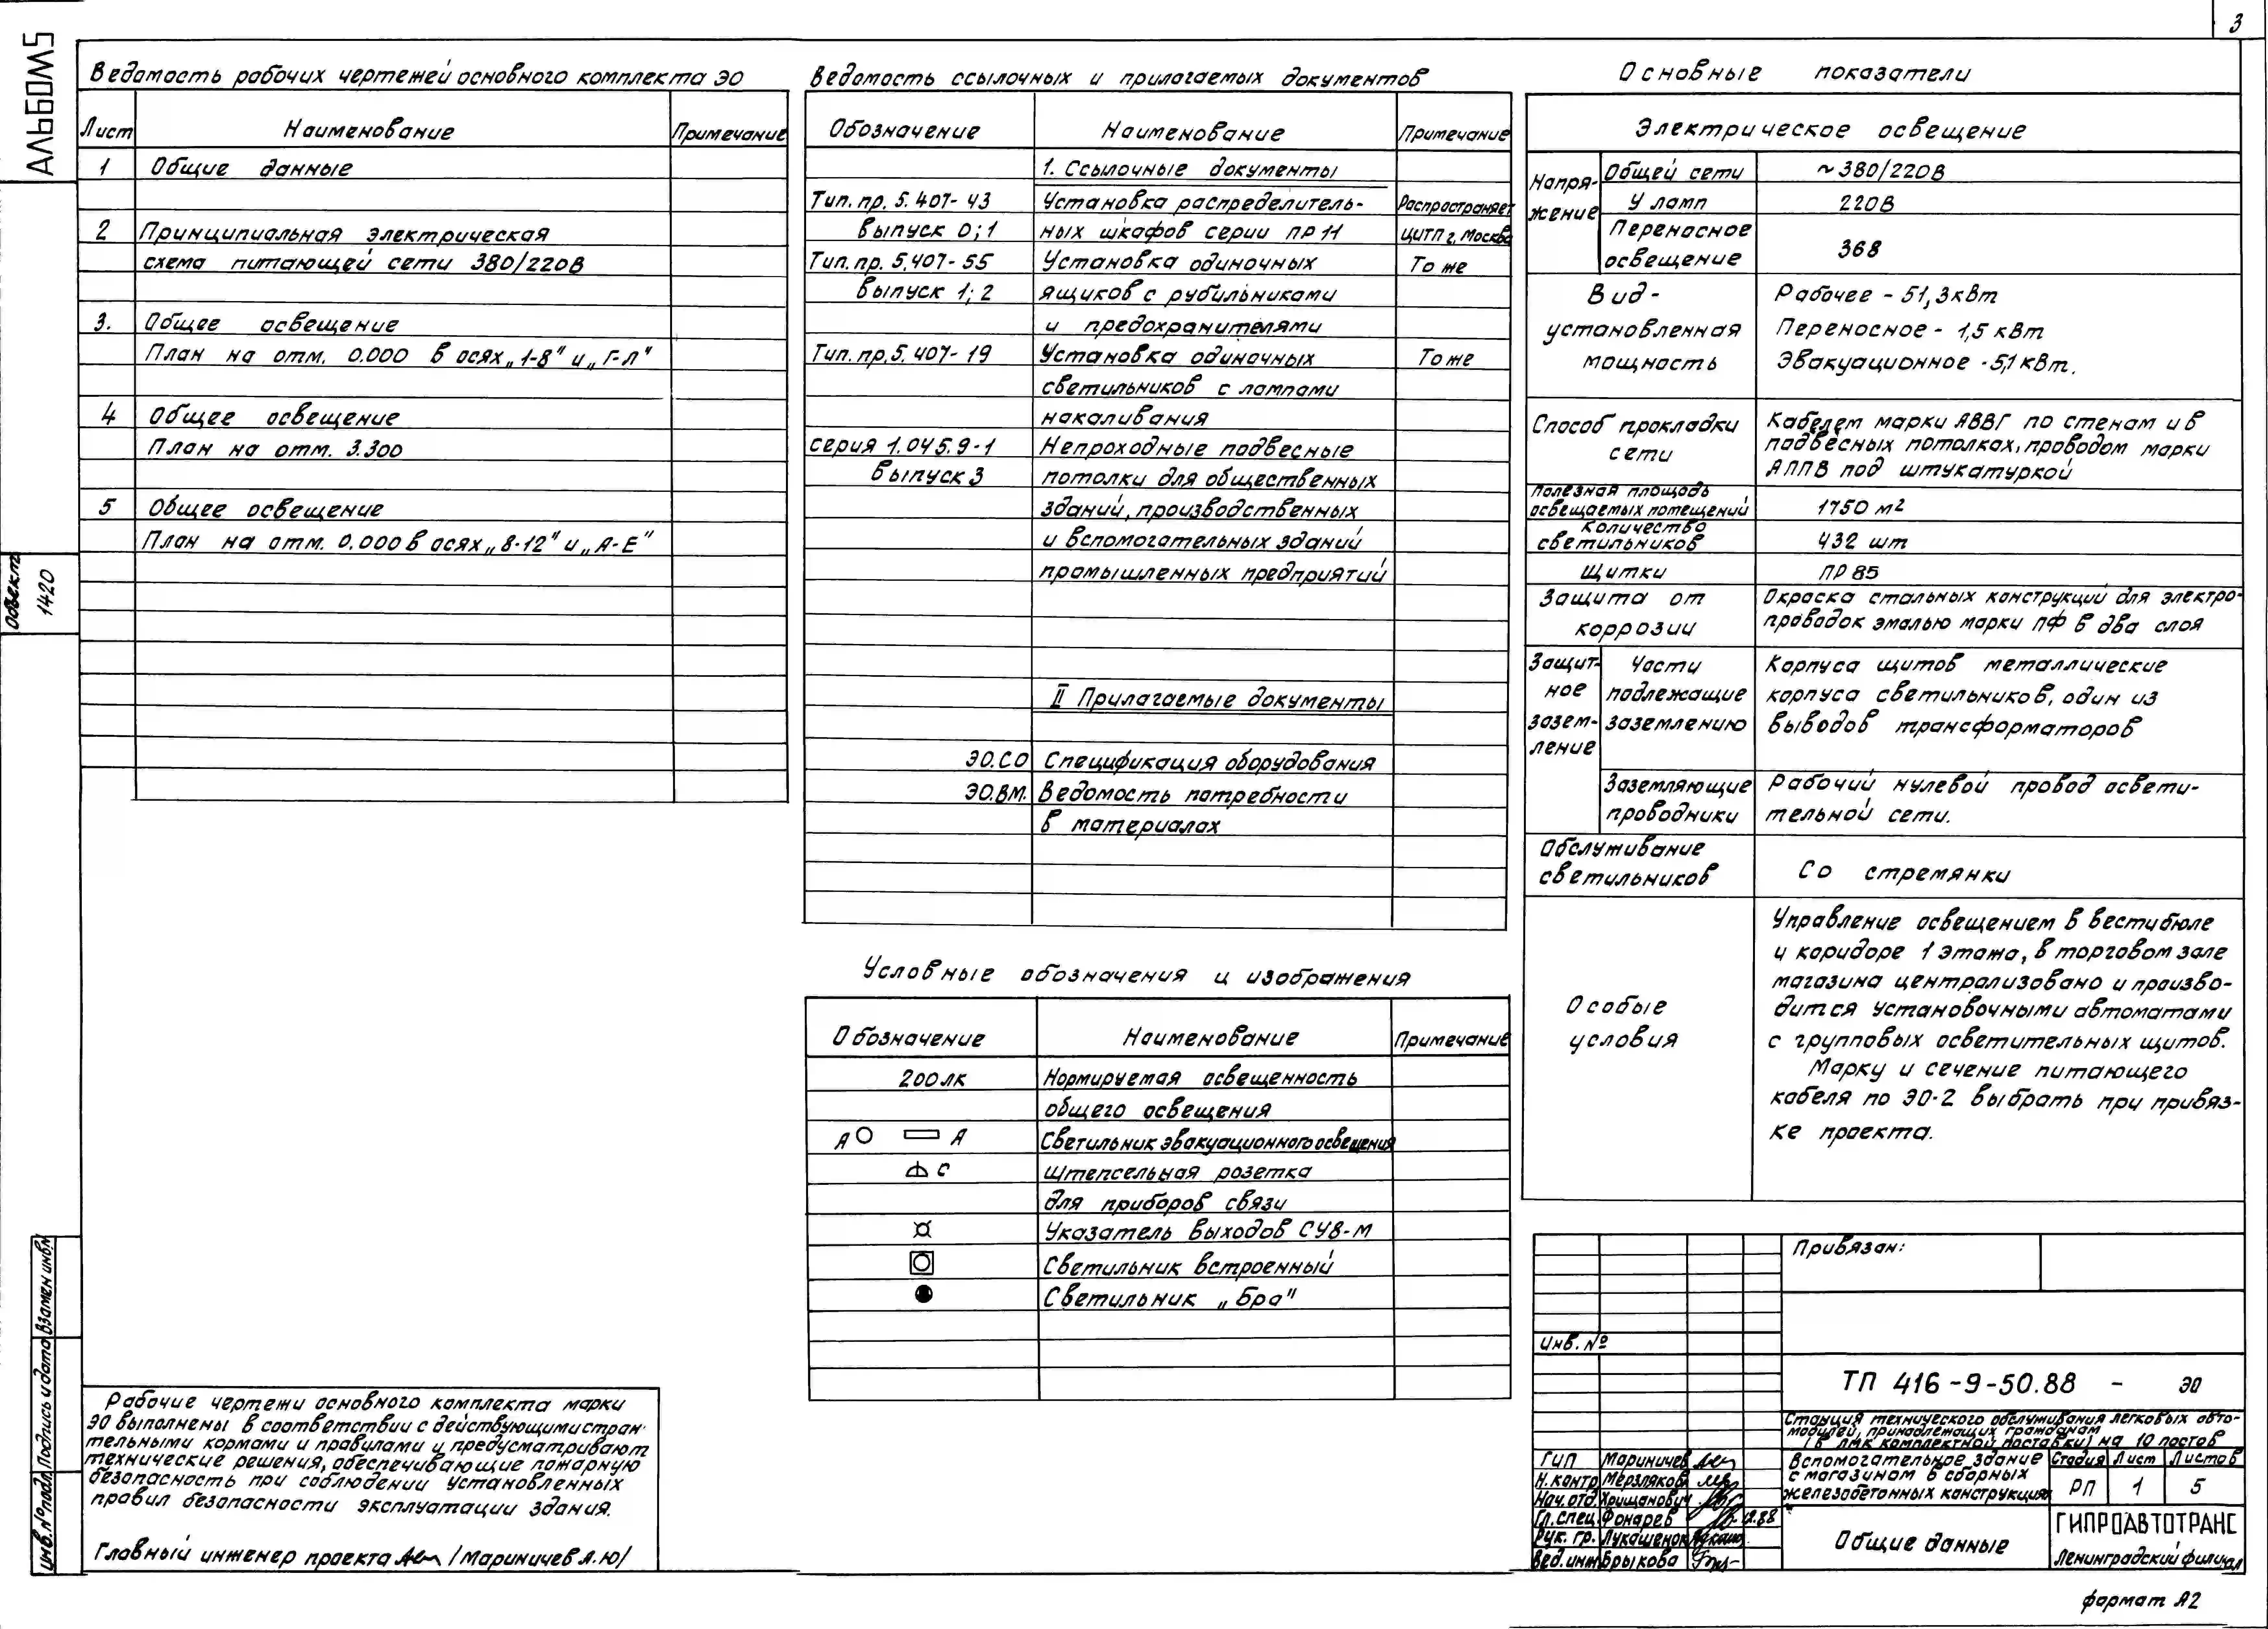 3
АЛЬБОМ 5
Объект
1420
Ведомость рабочих чертежей основного комплекта ЭО
Лист Наименование Примечание
1 Общие данные
2 Принципиальная электрическая
схема питающей сети 380/220В
3. Общее освещение
План на отм. 0.000 в осях „1-8" и „Г-Л"
4 Общее освещение
План на отм. 3.300
5 Общее освещение
План на отм. 0.000 в осях „8-12" и „А-Е"
Ведомость ссылочных и прилагаемых документов
Обозначение Наименование Примечание
1. Ссылочные документы
Тип. пр. 5.407-43 Установка распределитель- Распространяет
выпуск 0; 1 ных шкафов серии ПР11 ЦИТП г. Москва
Тип. пр. 5.407-55 Установка одиночных То же
выпуск 1; 2 ящиков с рубильниками
и предохранителями
Тип. пр. 5.407-19 Установка одиночных То же
светильников с лампами
накаливания
серия 1.045.9-1 Непроходные подвесные
выпуск 3 потолки для общественных
зданий, производственных
и вспомогательных зданий
промышленных предприятий
II Прилагаемые документы
ЭО.СО Спецификация оборудования
ЭО.ВМ. Ведомость потребности
в материалах
Условные обозначения и изображения
Обозначение Наименование Примечание
200лк Нормируемая освещенность
общего освещения
А А Светильник эвакуационного освещения
С Штепсельная розетка
для приборов связи
Указатель выходов СУ8-М
Светильник встроенный
Светильник „Бра"
Основные показатели
Электрическое освещение
Напря-
жение
Общей сети ~380/220В
У ламп 220В
Переносное
освещение 36В
Вид-
установленная
мощность
Рабочее - 51,3кВт
Переносное - 1,5 кВт
Эвакуационное - 5,1 кВт.
Способ прокладки
сети
Кабелем марки АВВГ по стенам и в
подвесных потолках, проводом марки
АППВ под штукатуркой
Полезная площадь
освещаемых помещений 1750 м²
Количество
светильников 432 шт
Щитки ПР 85
Защита от
коррозии
Окраска стальных конструкций для электро-
проводок эмалью марки ПФ в два слоя
Защит-
ное
зазем-
ление
Части
подлежащие
заземлению
Корпуса щитов металлические
корпуса светильников, один из
выводов трансформаторов
Заземляющие
проводники
Рабочий нулевой провод освети-
тельной сети.
Обслуживание
светильников
Со стремянки
Особые
условия
Управление освещением в вестибюле
и коридоре 1 этажа, в торговом зале
магазина централизовано и произво-
дится установочными автоматами
с групповых осветительных щитов.
Марку и сечение питающего
кабеля по ЭО-2 выбрать при привяз-
ке проекта.
Взамен инв.№
Подпись и дата
Инв.№ подл.
Рабочие чертежи основного комплекта марки
ЭО выполнены в соответствии с действующими стран-
тельными нормами и правилами и предусматривают
технические решения, обеспечивающие пожарную
безопасность при соблюдении установленных
правил безопасности эксплуатации здания.
Главный инженер проекта /Мариничев А.Ю/
Привязан:
Инв. №
ТП 416-9-50.88 - ЭО
Станция технического обслуживания легковых авто-
мобилей, принадлежащих гражданам
(в ЛМК комплектной поставки) на 10 постов
ГИП Мариничев
Н.контр Мерзлякова
Нач. отд. Хрищанович
Гл. спец. Фонарев 12.88
Рук. гр. Лукашенок
Вед. инж Брыкова
Вспомогательное здание
с магазином в сборных
железобетонных конструкциях
Стадия Лист Листов
РП 1 5
Общие данные
ГИПРОАВТОТРАНС
Ленинградский филиал
формат А2